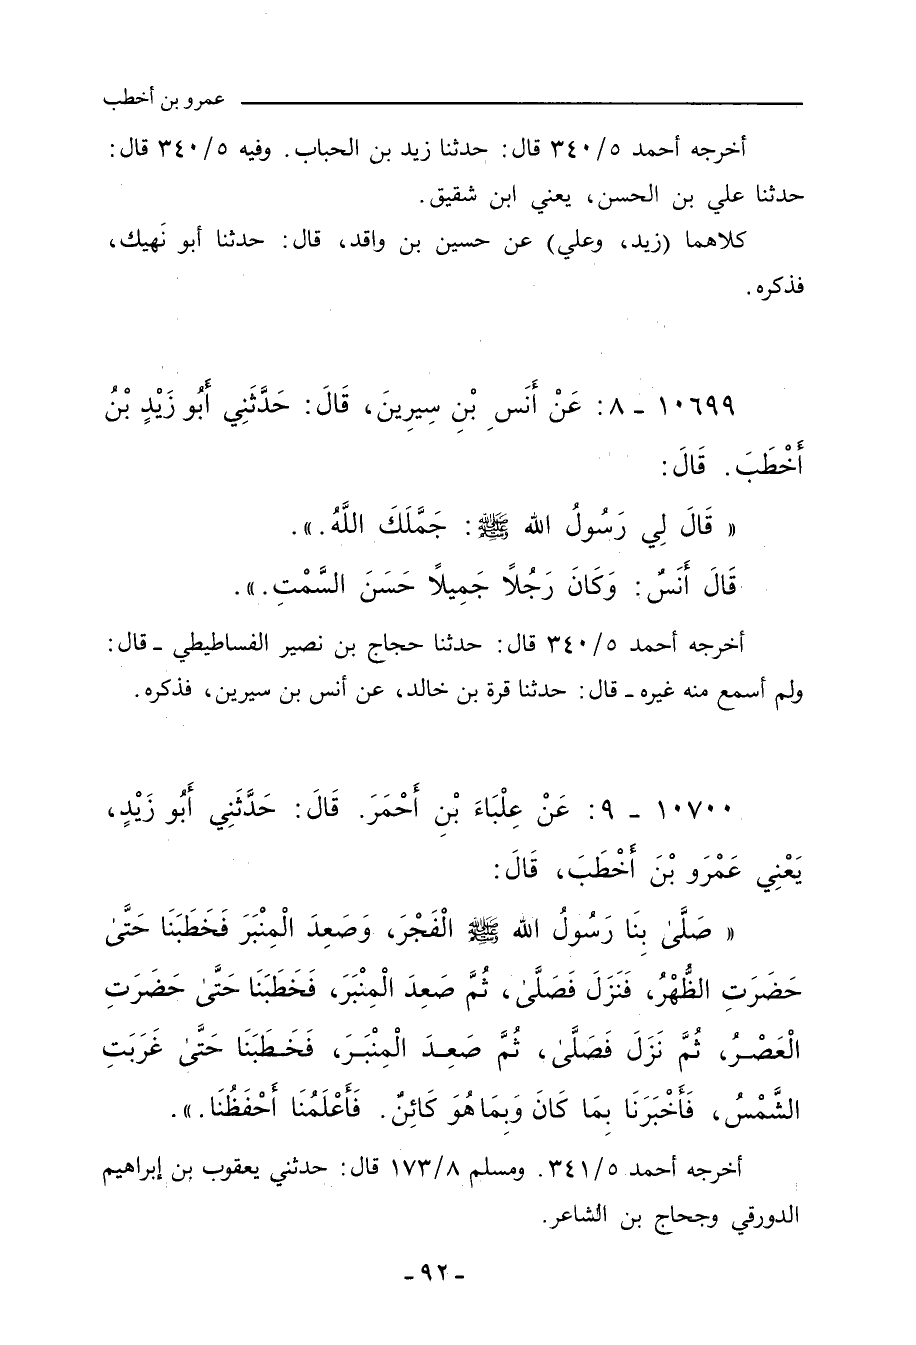 عمرو بن أخطب
أخرجه أحمد ٣٤٠/٥ قال: حدثنا زيد بن الحباب. وفيه ٣٤٠/٥ قال:
حدثنا علي بن الحسن، يعني ابن شقيق.
كلاهما (زيد، وعلي) عن حسين بن واقد، قال: حدثنا أبو نَهيك،
فذكره.
١٠٦٩٩ ـ ٨: عَنْ أَنَسِ بْنِ سِيرِينَ، قَالَ: حَدَّثَنِي أَبُو زَيْدٍ بْنُ
أَخْطَبَ. قَالَ:
« قَالَ لِي رَسُولُ الله ﷺ: جَمَّلَكَ اللَّهُ.».
قَالَ أَنَسٌ: وَكَانَ رَجُلاً جَمِيلاً حَسَنَ السَّمْتِ.».
أخرجه أحمد ٣٤٠/٥ قال: حدثنا حجاج بن نصير الفساطيطي ـ قال:
ولم أسمع منه غيره ـ قال: حدثنا قرة بن خالد، عن أنس بن سيرين، فذكره.
١٠٧٠٠ ـ ٩: عَنْ عِلْبَاءَ بْنِ أَحْمَرَ. قَالَ: حَدَّثَنِي أَبُو زَيْدٍ،
يَعْنِي عَمْرَو بْنَ أَخْطَبَ، قَالَ:
« صَلَّىٰ بِنَا رَسُولُ الله ﷺ الْفَجْرَ، وَصَعِدَ الْمِنْبَرَ فَخَطَبَنَا حَتَّىٰ
حَضَرَتِ الظُّهْرُ، فَنَزَلَ فَصَلَّىٰ، ثُمَّ صَعِدَ الْمِنْبَرَ، فَخَطَبَنَا حَتَّىٰ حَضَرَتِ
الْعَصْرُ، ثُمَّ نَزَلَ فَصَلَّىٰ، ثُمَّ صَعِدَ الْمِنْبَرَ، فَخَطَبَنَا حَتَّىٰ غَرَبَتِ
الشَّمْسُ، فَأَخْبَرَنَا بِمَا كَانَ وَبِمَا هُوَ كَائِنٌ. فَأَعْلَمُنَا أَحْفَظُنَا.».
أخرجه أحمد ٣٤١/٥. ومسلم ١٧٣/٨ قال: حدثني يعقوب بن إبراهيم
الدورقي وحجاج بن الشاعر.
- ٩٢ -